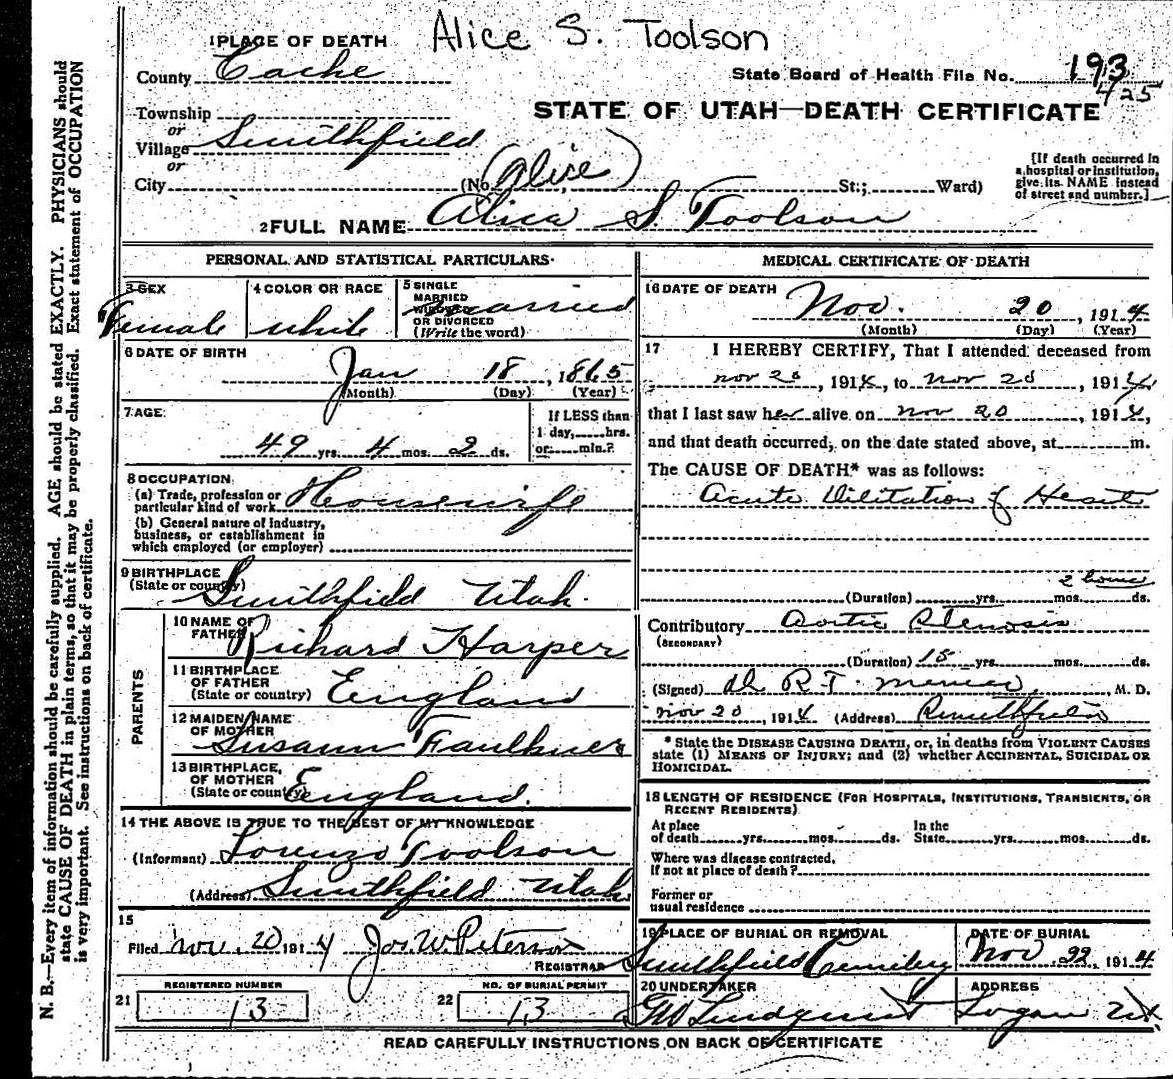 Alice S. Toolson
1 PLACE OF DEATH
County Cache
State Board of Health File No. 193
425
Township
or
Village Smithfield
or
STATE OF UTAH—DEATH CERTIFICATE
City (No. (Alice) St.; Ward)
[If death occurred in
a hospital or institution,
give its NAME instead
of street and number.]
2 FULL NAME Alica S. Toolson
PERSONAL AND STATISTICAL PARTICULARS
3 SEX
Female
4 COLOR OR RACE
white
5 SINGLE
MARRIED
WIDOWED
OR DIVORCED
(Write the word)
married
6 DATE OF BIRTH
Jan 18, 1865
(Month) (Day) (Year)
7 AGE
49 yrs. 4 mos. 2 ds.
If LESS than
1 day, hrs.
or min.?
8 OCCUPATION
(a) Trade, profession or
particular kind of work Housewife
(b) General nature of Industry,
business, or establishment in
which employed (or employer)
9 BIRTHPLACE
(State or country)
Smithfield Utah.
PARENTS
10 NAME OF
FATHER Richard Harper
11 BIRTHPLACE
OF FATHER
(State or country) England
12 MAIDEN NAME
OF MOTHER
Susann Faulkner
13 BIRTHPLACE
OF MOTHER
(State or country) England.
14 THE ABOVE IS TRUE TO THE BEST OF MY KNOWLEDGE
(Informant) Lorenzo Toolson
(Address) Smithfield Utah
15
Filed Nov. 20 1914 Jos. W. Peterson
REGISTRAR
21 REGISTERED NUMBER
13
22 NO. OF BURIAL PERMIT
13
MEDICAL CERTIFICATE OF DEATH
16 DATE OF DEATH Nov. 20, 1914
(Month) (Day) (Year)
17 I HEREBY CERTIFY, That I attended deceased from
nov 20, 1914, to nov 20, 1914,
that I last saw her alive on nov 20, 1914,
and that death occurred, on the date stated above, at m.
The CAUSE OF DEATH* was as follows:
Acute Dilitation of Heart
2 hours
(Duration) yrs. mos. ds.
Contributory Aortic Stenosis
(SECONDARY)
(Duration) 15 yrs. mos. ds.
(Signed) R. T. M. D.
nov 20, 1914 (Address) Smithfield
* State the DISEASE CAUSING DEATH, or, in deaths from VIOLENT CAUSES
state (1) MEANS OF INJURY; and (2) whether ACCIDENTAL, SUICIDAL OR
HOMICIDAL.
18 LENGTH OF RESIDENCE (FOR HOSPITALS, INSTITUTIONS, TRANSIENTS, OR
RECENT RESIDENTS)
At place
of death yrs. mos. ds.
In the
State yrs. mos. ds.
Where was disease contracted,
If not at place of death?
Former or
usual residence
19 PLACE OF BURIAL OR REMOVAL
Smithfield Cemetery
DATE OF BURIAL
Nov 22, 1914
20 UNDERTAKER
Lindquist
ADDRESS
Logan Ut
READ CAREFULLY INSTRUCTIONS ON BACK OF CERTIFICATE
N. B.—Every item of information should be carefully supplied. AGE should be stated EXACTLY. PHYSICIANS should
state CAUSE OF DEATH in plain terms, so that it may be properly classified. Exact statement of OCCUPATION
is very important. See instructions on back of certificate.